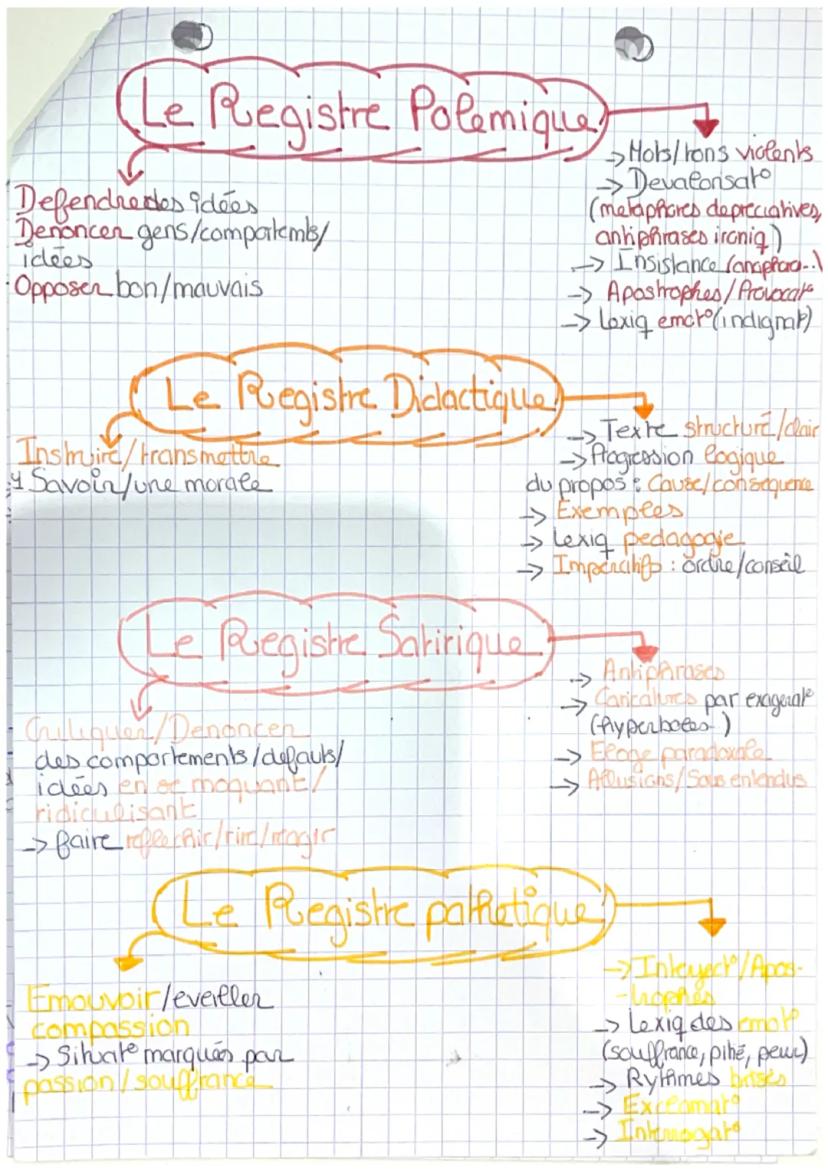 Le Registre Polemique
Defendre des idées
Denoncer gens/comportemts/
idées
Opposer bon/mauvais
-> Mots/tons violents
-> Devalorisat°
(metaphores depreciatives,
antiphrases ironiq)
-> Insistance (anaphor...)
-> Apostrophes/Provocat°
-> Lexiq emot° (indignat°)
Le Registre Didactique
Instruire/transmettre
1 Savoir/une morale
-> Texte structuré/clair
-> Progression logique
du propos : Cause/consequence
-> Exemples
-> Lexiq pedagogie
-> Imperatifs : ordre/conseil
Le Registre Satirique
Critiquer/Denoncer
des comportements/defauts/
idées en se moquant/
ridiculisant
-> faire reflechir/rire/reagir
-> Antiphrases
-> Caricatures par exagerat°
(hyperboles)
-> Eloge paradoxale
-> Allusions/Sous entendus
Le Registre pathetique
Emouvoir/eveiller
compassion
-> Situat° marqués par
passion/souffrance
-> Interject°/Apos-
-trophes
-> Lexiq des emot°
(souffrance, pitié, peur)
-> Rythmes brisés
-> Exclamat°
-> Interrogat°